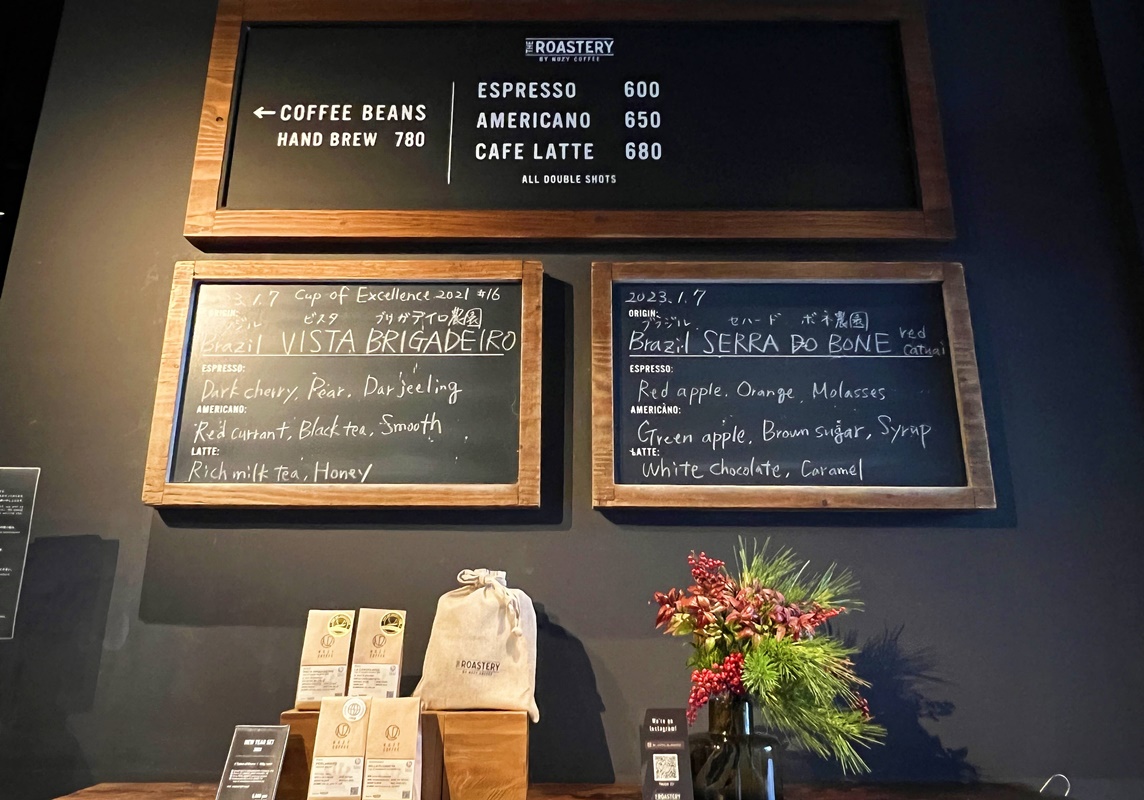 THE ROASTERY
BY NOZY COFFEE
←COFFEE BEANS
HAND BREW 780
ESPRESSO 600
AMERICANO 650
CAFE LATTE 680
ALL DOUBLE SHOTS
3.1.7 Cup of Excellence 2021 #16
ORIGIN:
ブラジル ビスタ ブリガデイロ農園
Brazil VISTA BRIGADEIRO
ESPRESSO:
Dark cherry, Pear, Darjeeling
AMERICANO:
Red currant, Black tea, Smooth
LATTE:
Rich milk tea, Honey
2023.1.7
ORIGIN:
ブラジル セハード ボネ農園
Brazil SERRA DO BONE red catuai
ESPRESSO:
Red apple, Orange, Molasses
AMERICANO:
Green apple, Brown sugar, Syrup
LATTE:
White chocolate, Caramel
THE ROASTERY
BY NOZY COFFEE
NOZY
COFFEE
NOZY
COFFEE
NOZY
COFFEE
NOZY
COFFEE
NEW YEAR SET
We're on
Instagram!
THE ROASTERY